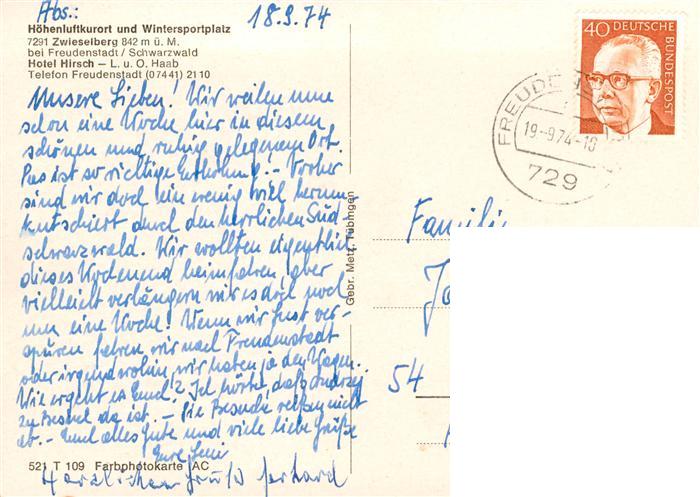 Abs.: 18.9.74
Höhenluftkurort und Wintersportplatz
7291 Zwieselberg 842 m ü. M.
bei Freudenstadt / Schwarzwald
Hotel Hirsch – L. u. O. Haab
Telefon Freudenstadt (07441) 2110
Unsere Lieben! Wir weilen nun
schon eine Woche hier in diesem
schönen und ruhig gelegenem Ort.
Das ist so richtige Erholung. – Vorher
sind wir doch ein wenig viel herum
kutschiert durch den herrlichen Süd-
schwarzwald. Wir wollten eigentlich
dieses Wochenend heimfahren, aber
vielleicht verlängern wir es doch noch
um eine Woche! Wenn wir Lust ver-
spüren fahren wir nach Freudenstadt
oder irgendwohin, wir haben ja den Wagen.
Wie ergeht es Euch? Ich hörte, daß
zu Besuch da ist. – Die Besuche reißen nicht
ab. – Euch alles Gute und viele liebe Grüße
Eure
Herzlichen Gruß Gerhard
521 T 109 Farbphotokarte AC
Gebr. Metz, Tübingen
40 DEUTSCHE
BUNDESPOST
19.-9.74-18
729
Familie
54